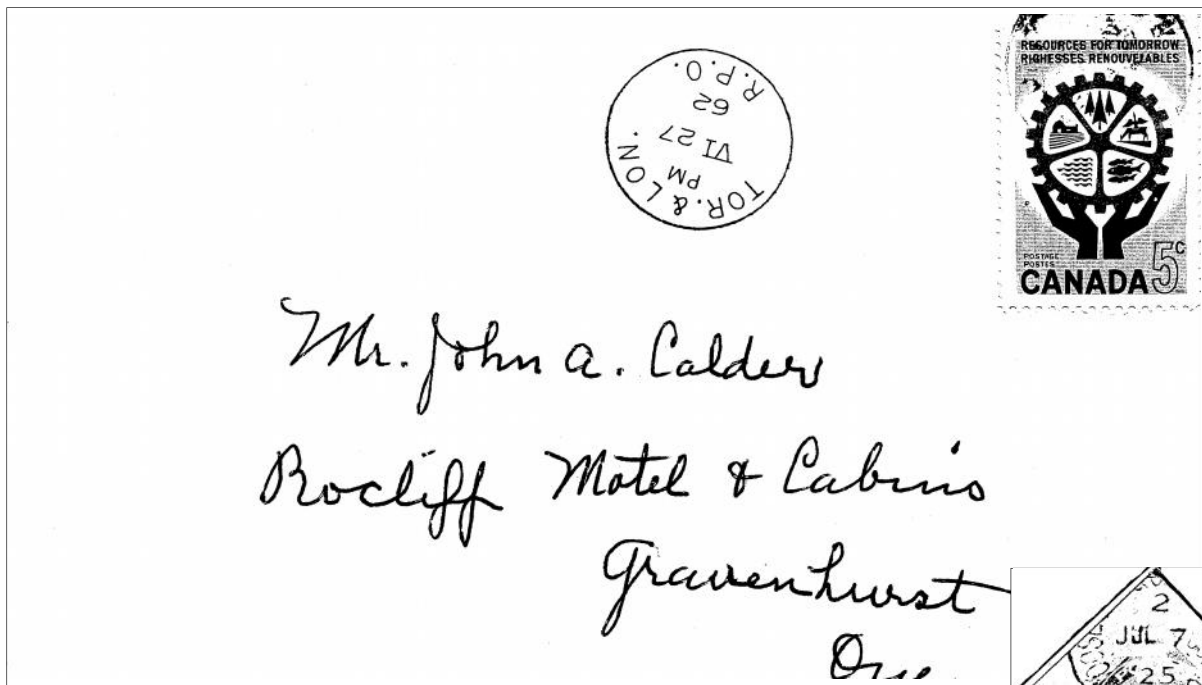 R.P.O.
62
VI 27
PM
TOR. & LON.
RESOURCES FOR TOMORROW
RICHESSES RENOUVELABLES
POSTAGE
POSTES
CANADA 5c
Mr. John A. Calder
Rocliff Motel & Cabins
Gravenhurst
2
JUL 7
25